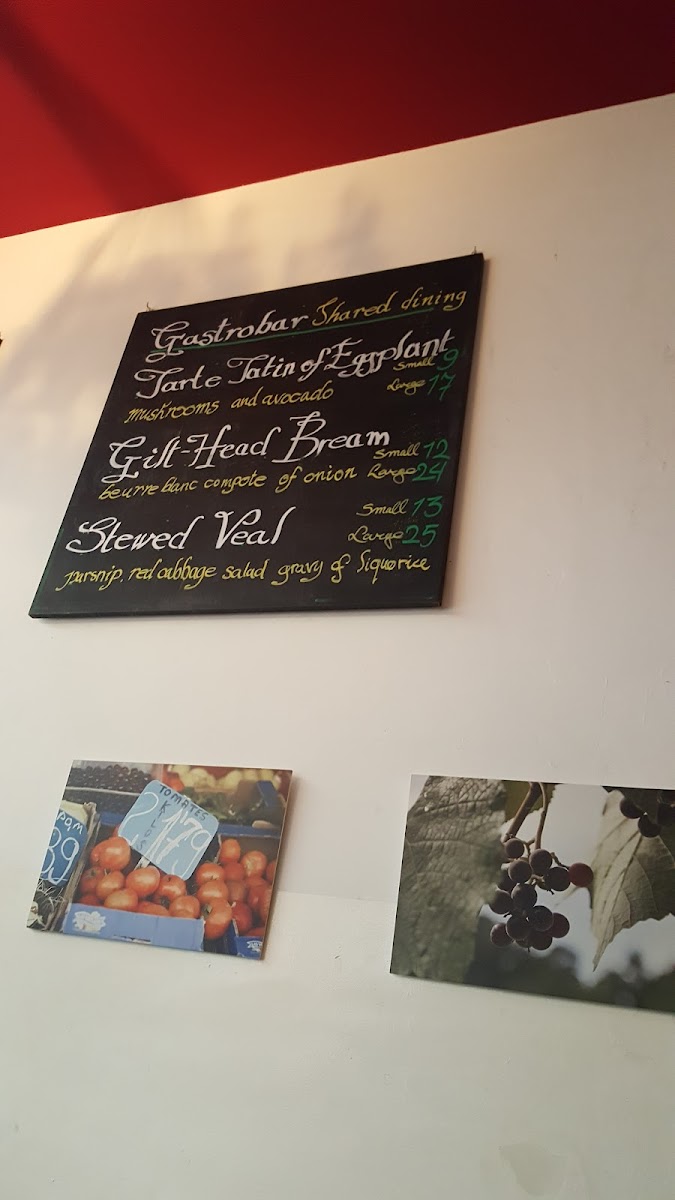 Gastrobar Shared dining
Tarte Tatin of Eggplant
Small 9
mushrooms and avocado
Large 17
Gilt-Head Bream
Small 12
beurre blanc compote of onion Large 24
Small 13
Stewed Veal
Large 25
parsnip, red cabbage salad gravy of liquorice
TOMATES
2 KILOS
1.79